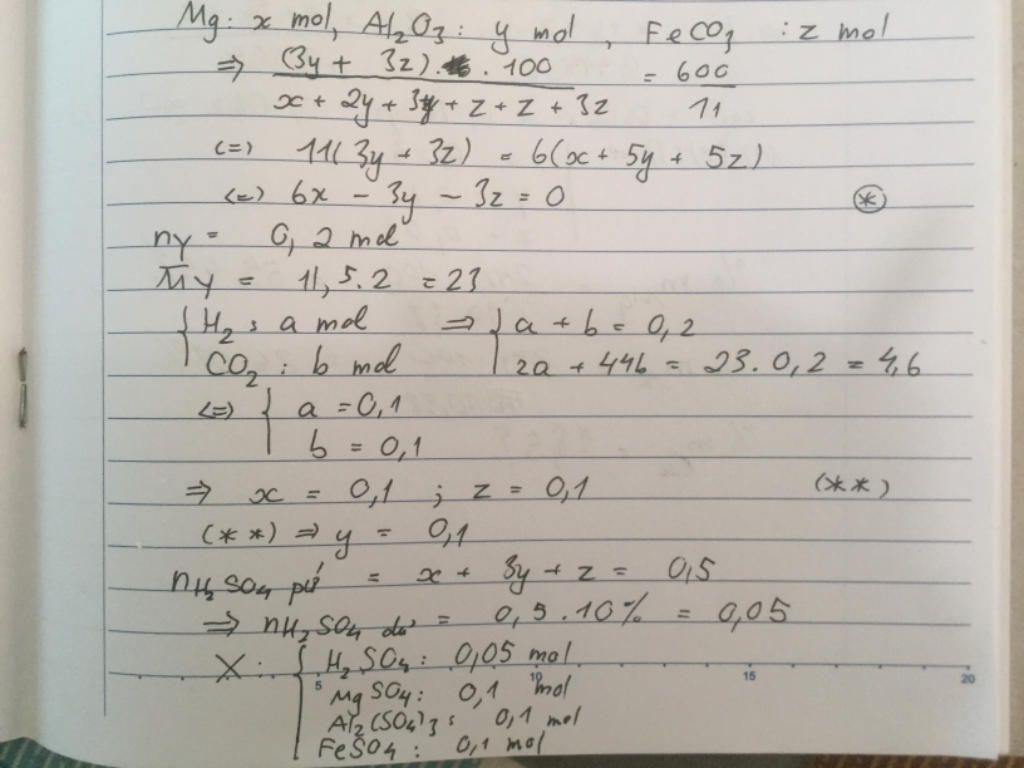 Mg: x mol, Al2O3: y mol, FeCO3: z mol
=> (3y + 3z) . 100 / x + 2y + 3y + z + z + 3z = 600 / 11
<=> 11(3y + 3z) = 6(x + 5y + 5z)
<=> 6x - 3y - 3z = 0 (*)
nY = 0,2 mol
MY = 11,5.2 = 23
{ H2: a mol => { a + b = 0,2
CO2: b mol 2a + 44b = 23.0,2 = 4,6
<=> { a = 0,1
b = 0,1
=> x = 0,1 ; z = 0,1 (**)
(**) => y = 0,1
nH2SO4 pứ = x + 3y + z = 0,5
=> nH2SO4 dư = 0,5.10% = 0,05
X: { H2SO4: 0,05 mol
5 10 15 20
MgSO4: 0,1 mol
Al2(SO4)3: 0,1 mol
FeSO4: 0,1 mol